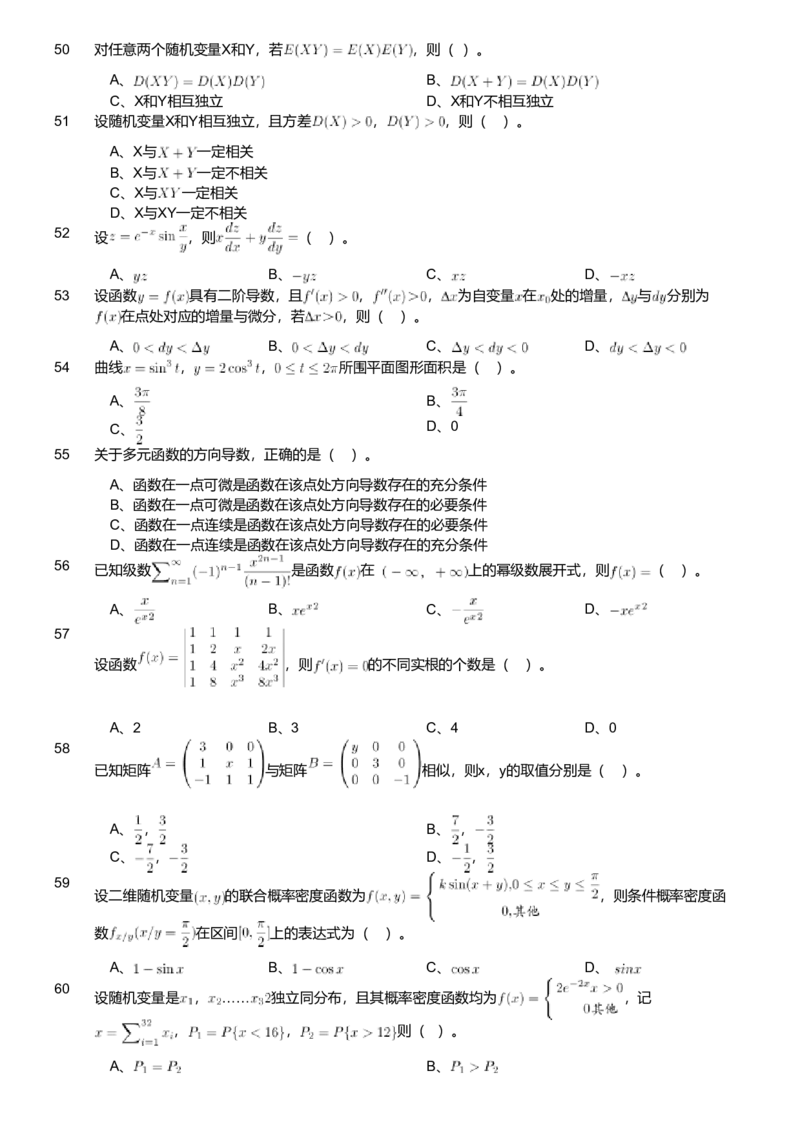 50 对任意两个随机变量X和Y，若E(XY) = E(X)E(Y)，则（ ）。
A、D(XY) = D(X)D(Y) B、D(X + Y) = D(X)D(Y)
C、X和Y相互独立 D、X和Y不相互独立
51 设随机变量X和Y相互独立，且方差D(X) > 0，D(Y) > 0，则（ ）。
A、X与X + Y一定相关
B、X与X + Y一定不相关
C、X与XY一定相关
D、X与XY一定不相关
52 设z = e^{-x} sin x/y，则x dz/dx + y dz/dy =（ ）。
A、yz B、-yz C、xz D、-xz
53 设函数y = f(x)具有二阶导数，且f'(x) > 0，f''(x)>0，Δx为自变量x在x₀处的增量，Δy与dy分别为
f(x)在点处对应的增量与微分，若Δx>0，则（ ）。
A、0 < dy < Δy B、0 < Δy < dy C、Δy < dy < 0 D、dy < Δy < 0
54 曲线x = sin³ t，y = 2cos³ t，0 ≤ t ≤ 2π所围平面图形面积是（ ）。
A、3π/8 B、3π/4
C、3/2 D、0
55 关于多元函数的方向导数，正确的是（ ）。
A、函数在一点可微是函数在该点处方向导数存在的充分条件
B、函数在一点可微是函数在该点处方向导数存在的必要条件
C、函数在一点连续是函数在该点处方向导数存在的必要条件
D、函数在一点连续是函数在该点处方向导数存在的充分条件
56 已知级数∑_{n=1}^{∞} (-1)^{n-1} x^{2n-1}/(n-1)!是函数f(x)在（-∞，+∞)上的幂级数展开式，则f(x) =（ ）。
A、x/e^{x2} B、xe^{x2} C、-x/e^{x2} D、-xe^{x2}
57
1 1 1 1
1 2 x 2x
设函数f(x) = 1 4 x² 4x²，则f'(x) = 0的不同实根的个数是（ ）。
1 8 x³ 8x³
A、2 B、3 C、4 D、0
58
3 0 0 y 0 0
已知矩阵A = 1 x 1 与矩阵B = 0 3 0 相似，则x，y的取值分别是（ ）。
-1 1 1 0 0 -1
A、1/2，3/2 B、7/2，-3/2
C、-7/2，-3/2 D、-1/2，3/2
59 设二维随机变量(x,y)的联合概率密度函数为f(x,y) = { k sin(x + y),0 ≤ x ≤ y ≤ π/2 0,其他，则条件概率密度函
数f_{x/y}(x/y = π/2)在区间[0, π/2]上的表达式为（ ）。
A、1 - sin x B、1 - cos x C、cos x D、sinx
60 设随机变量是x₁，x₂……x₃2独立同分布，且其概率密度函数均为f(x) = { 2e^{-2x} x > 0 0其他，记
x = ∑_{i=1}^{32} x_i，P₁ = P{x < 16}，P₂ = P{x > 12}则（ ）。
A、P₁ = P₂ B、P₁ > P₂